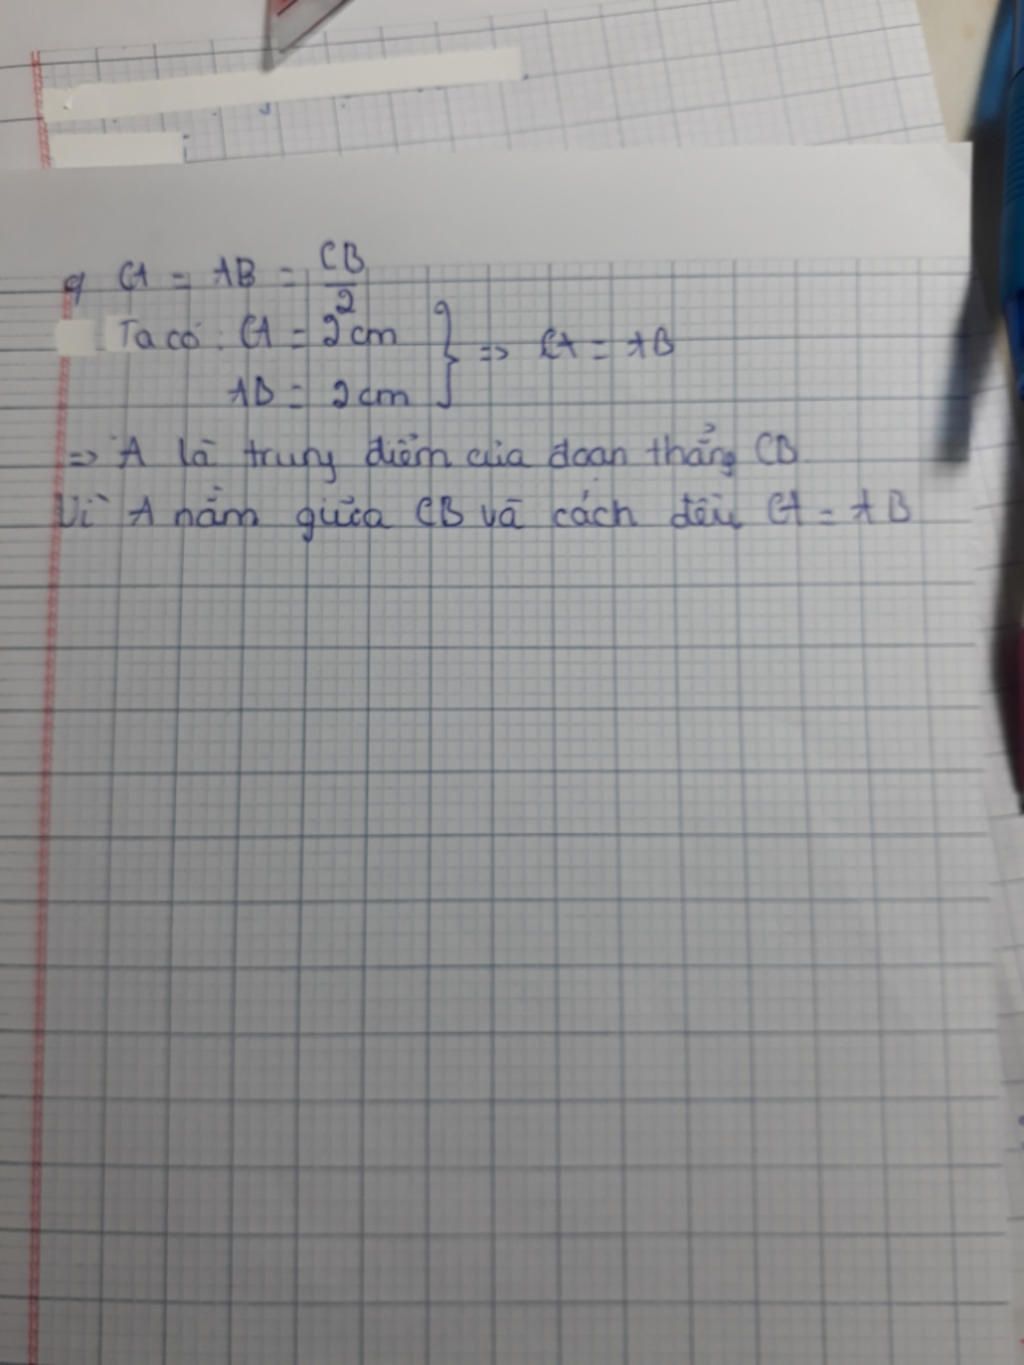 c) CA = AB = CB/2
Ta có: CA = 2cm
AB = 2cm } => CA = AB
=> A là trung điểm của đoạn thẳng CB
Vì A nằm giữa CB và cách đều CA = AB